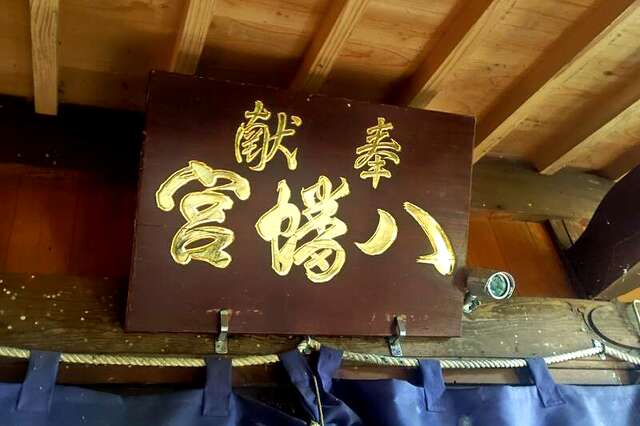 奉献
八幡宮